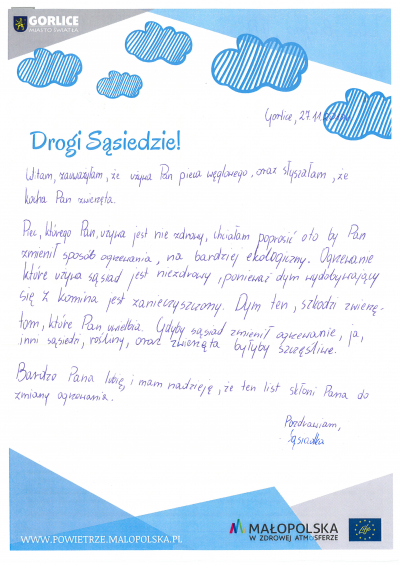 GORLICE
MIASTO ŚWIATŁA
Gorlice, 27.11.
Drogi Sąsiedzie!
Witam, zauważyłam, że używa Pan pieca węglowego, oraz słyszałam, że
kocha Pan zwierzęta.
Piec, którego Pan używa jest nie zdrowy, chciałam poprosić oto by Pan
zmienił sposób ogrzewania, na bardziej ekologiczny. Ogrzewanie
które używa sąsiad jest niezdrowy, ponieważ dym wydobywający
się z komina jest zanieczyszczony. Dym ten, szkodzi zwierzę-
tom, które Pan uwielbia. Gdyby sąsiad zmienił ogrzewanie, ja,
inni sąsiedzi, rośliny, oraz zwierzęta byłyby szczęśliwe.
Bardzo Pana lubię, i mam nadzieję, że ten list skłoni Pana do
zmiany ogrzewania.
Pozdrawiam,
Sąsiadka
WWW.POWIETRZE.MALOPOLSKA.PL
MAŁOPOLSKA
W ZDROWEJ ATMOSFERZE
Life